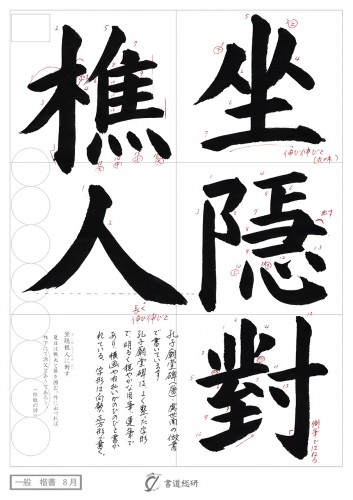 坐隠對
樵人
出す
長く
のびのびと
側筆ではねる
孔子廟堂碑(唐) 虞世南の倣書
で書いています。
孔子廟堂碑は、よく整った字形
で明るく穏やかな用筆、運筆で
あり、横画や右払いがのびのびと書か
れている。字形は向勢、正方形で書く。
坐隠樵人に對す
一般 楷書 8月
書道総研